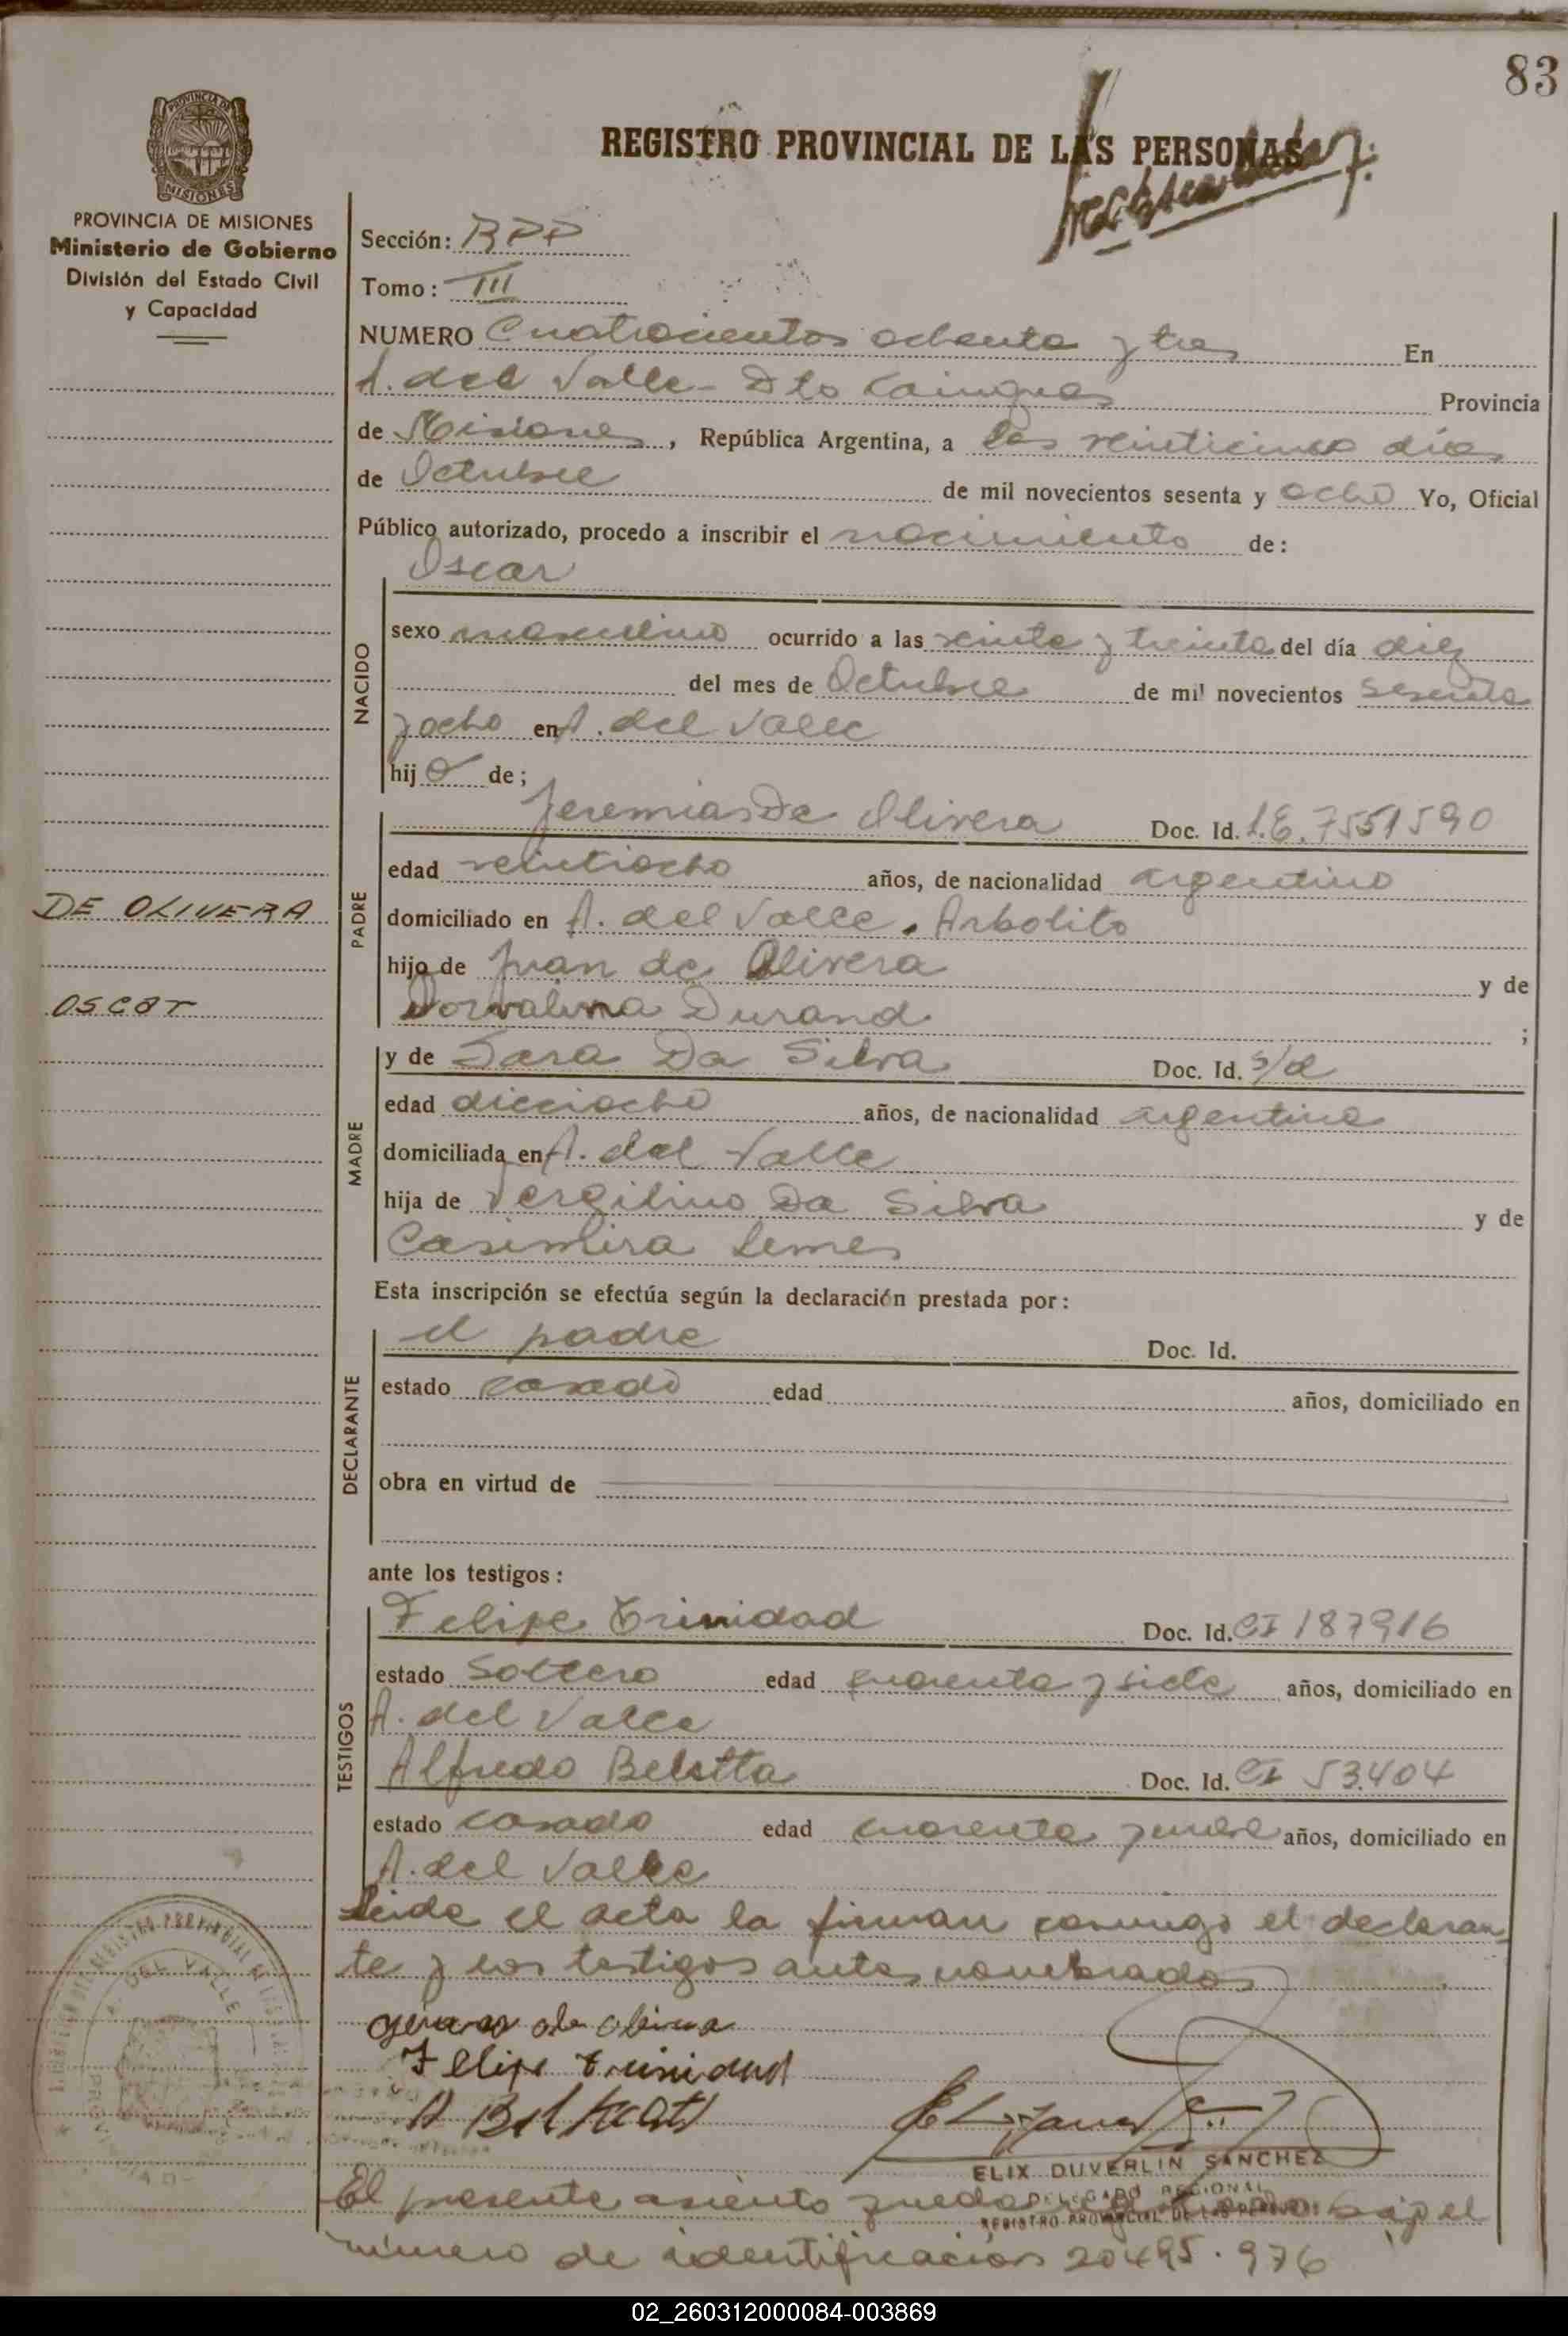 83
REGISTRO PROVINCIAL DE LAS PERSONAS
PROVINCIA DE MISIONES
Ministerio de Gobierno
División del Estado Civil
y Capacidad
Sección: RPP
Tomo: III
NUMERO Cuatrocientos ochenta y tres En
A. del Valle - Dto Cainguas Provincia
de Misiones, República Argentina, a los veinticinco días
de Octubre de mil novecientos sesenta y ocho Yo, Oficial
Público autorizado, procedo a inscribir el nacimiento de:
Oscar
NACIDO
sexo masculino ocurrido a las veinte y treinta del día diez
del mes de Octubre de mil novecientos sesenta
y ocho en A. del Valle
hijo de;
PADRE
Jeremias De Olivera Doc. Id. L.E. 7551590
edad veintiocho años, de nacionalidad argentino
DE OLIVERA
domiciliado en A. del Valle. Arbolito
hijo de Juan de Olivera y de
OSCAr
Dorvalina Durand ;
MADRE
y de Sara Da Silva Doc. Id. s/d
edad dieciocho años, de nacionalidad argentina
domiciliada en A. del Valle
hija de Vergilino Da Silva y de
Casimira Lemes
Esta inscripción se efectúa según la declaración prestada por:
DECLARANTE
el padre Doc. Id.
estado casado edad años, domiciliado en
obra en virtud de
ante los testigos:
TESTIGOS
Felipe Trinidad Doc. Id. CI 187916
estado Soltero edad cuarenta y siete años, domiciliado en
A. del Valle
Alfredo Doc. Id. CI 53.404
estado casado edad cuarenta y nueve años, domiciliado en
A. del Valle
Leida el acta la firman conmigo el declaran
te y los testigos antes nombrados
Felipe Trinidad
ELIX DUVERLIN SANCHEZ
DELEGADO REGIONAL
REGISTRO PROVINCIAL DE LAS PERSONAS
A. DEL VALLE
El presente asiento queda bajo el
número de identificacion 20495.976
02_260312000084-003869